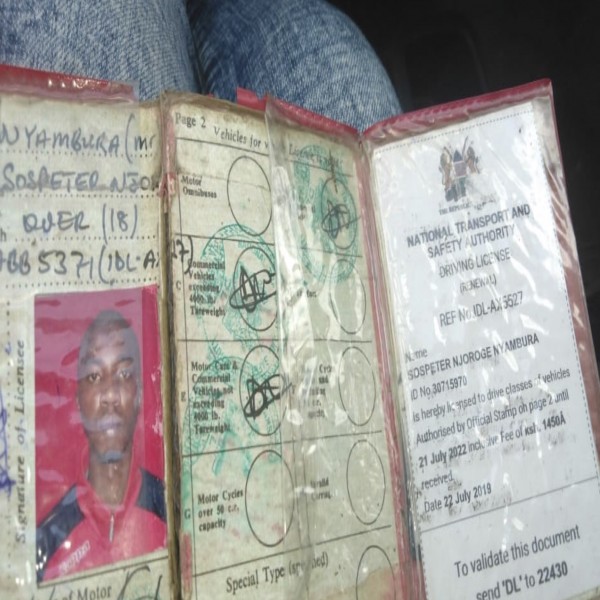 NYAMBURA (M
SOSPETER NJO
OVER (18)
BB5371 (IDL-A
Signature of Licensee
of Motor
Page 2
Vehicles for
Motor
Omnibuses
C
Commercial
Vehicles
exceeding
4000 lb.
Tareweight
E
Motor Cars &
Commercial
Vehicles not
exceeding
4000 lb.
Tareweight
G
Motor Cycles
over 50 c.c.
capacity
Special Type (
NATIONAL TRANSPORT AND
SAFETY AUTHORITY
DRIVING LICENSE
(RENEWAL)
REF No.IDL-AX
Name
SOSPETER NJOROGE NYAMBURA
ID No.30715970
is hereby licensed to drive classes of vehicles
Authorised by Official Stamp on page 2 until
21 July 2022 inclusive Fee of ksh. 1450Â
received
Date 22 July 2019
To validate this document
send 'DL' to 22430